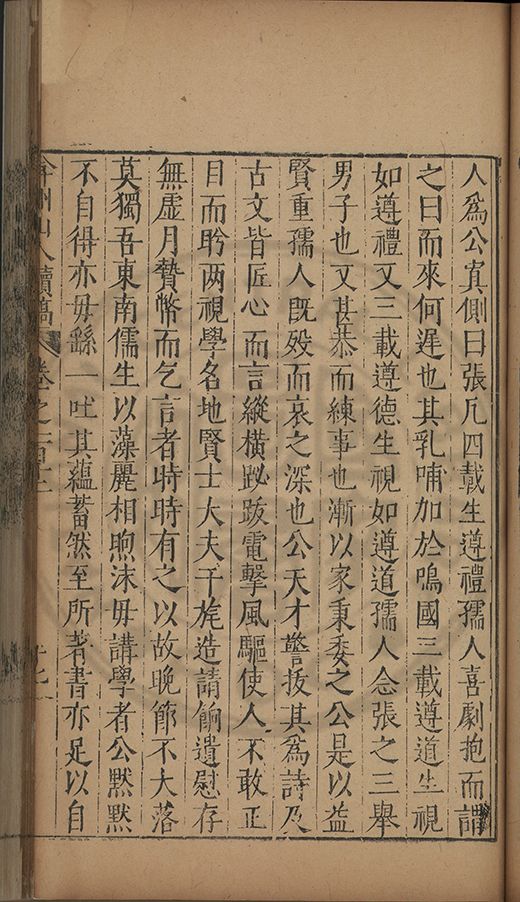 人爲公寘側曰張凡四載生遵禮孺人喜劇抱而謂
之曰而來何遲也其乳哺加於鳴國三載遵道生視
如遵禮又三載遵德生視如遵道孺人念張之三舉
男子也又甚恭而練事也漸以家秉委之公是以益
賢重孺人旣歿而哀之深也公天才警拔其爲詩及
古文皆匠心而言縱橫跛跋電擊風驅使人不敢正
目而盻两視學名地賢士大夫干旄造請餉遺慰存
無虛月贄幣而乞言者時時有之以故晚節不大落
莫獨吾東南儒生以藻麗相昫沫毋講學者公黙黙
不自得亦毋繇一吐其蘊蓄然至所著書亦足以自
弇州山人續稿 卷之一百十三 十七